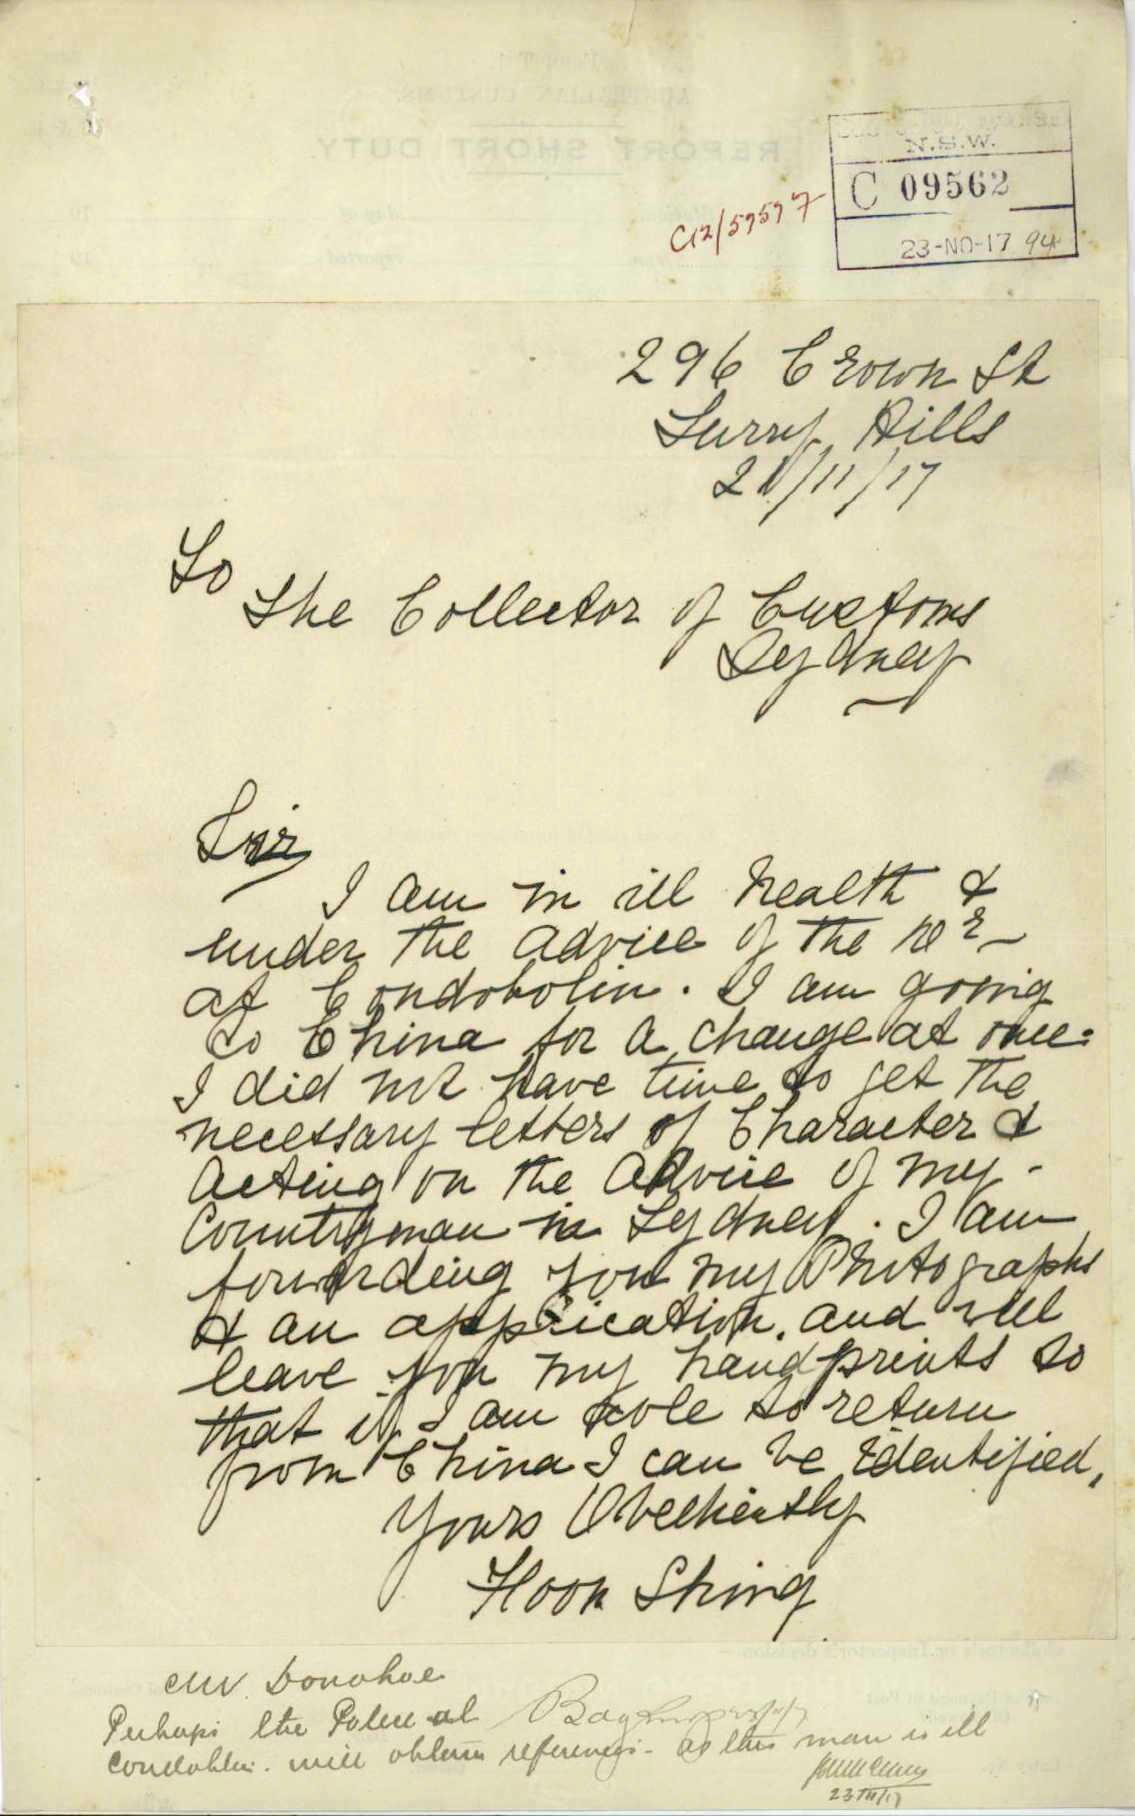 N.S.W.
C 09562
C12/59597
23-NO-17 94
296 Crown St
Surry Hills
21/11/17
To
The Collector of Customs
Sydney
Sir
I am in ill health &
under the advice of the Dr
at Condobolin. I am going
to China for a change at once.
I did not have time to get the
necessary letters of Character &
Acting on the advice of my
Countryman in Sydney. I am
forwarding you my Photographs
& an application. and will
leave you my handprints so
that if I am able to return
from China I can be identified.
Yours Obediently
Hoon Shing
Mr Donohoe
Perhaps the Police at
Condoblin. will obtain references - as this man is ill
23/11/17